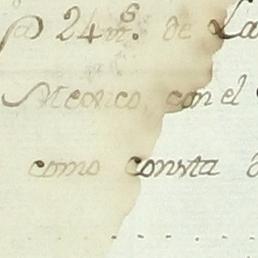 a 24 ms. de La
Mexico, con el
como consta